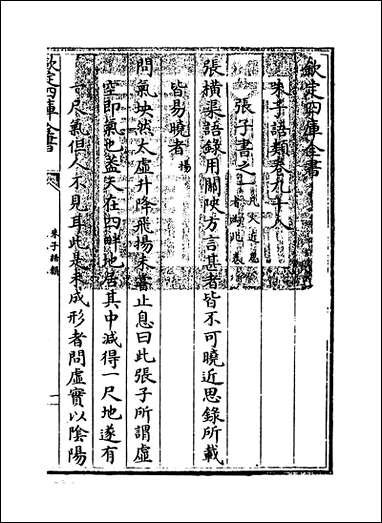 欽定四庫全書
朱子語類卷九十八
張子書之一
張橫渠語錄用關陝方言甚者皆不可曉近思錄所載
皆易曉者 楊
問氣坱然太虛升降飛揚未嘗止息曰此張子所謂虛
空即氣也蓋天在四畔地居其中減得一尺地遂有
一尺氣但人不見耳此是未成形者問虛實以陰陽
欽定四庫全書
朱子語類
一